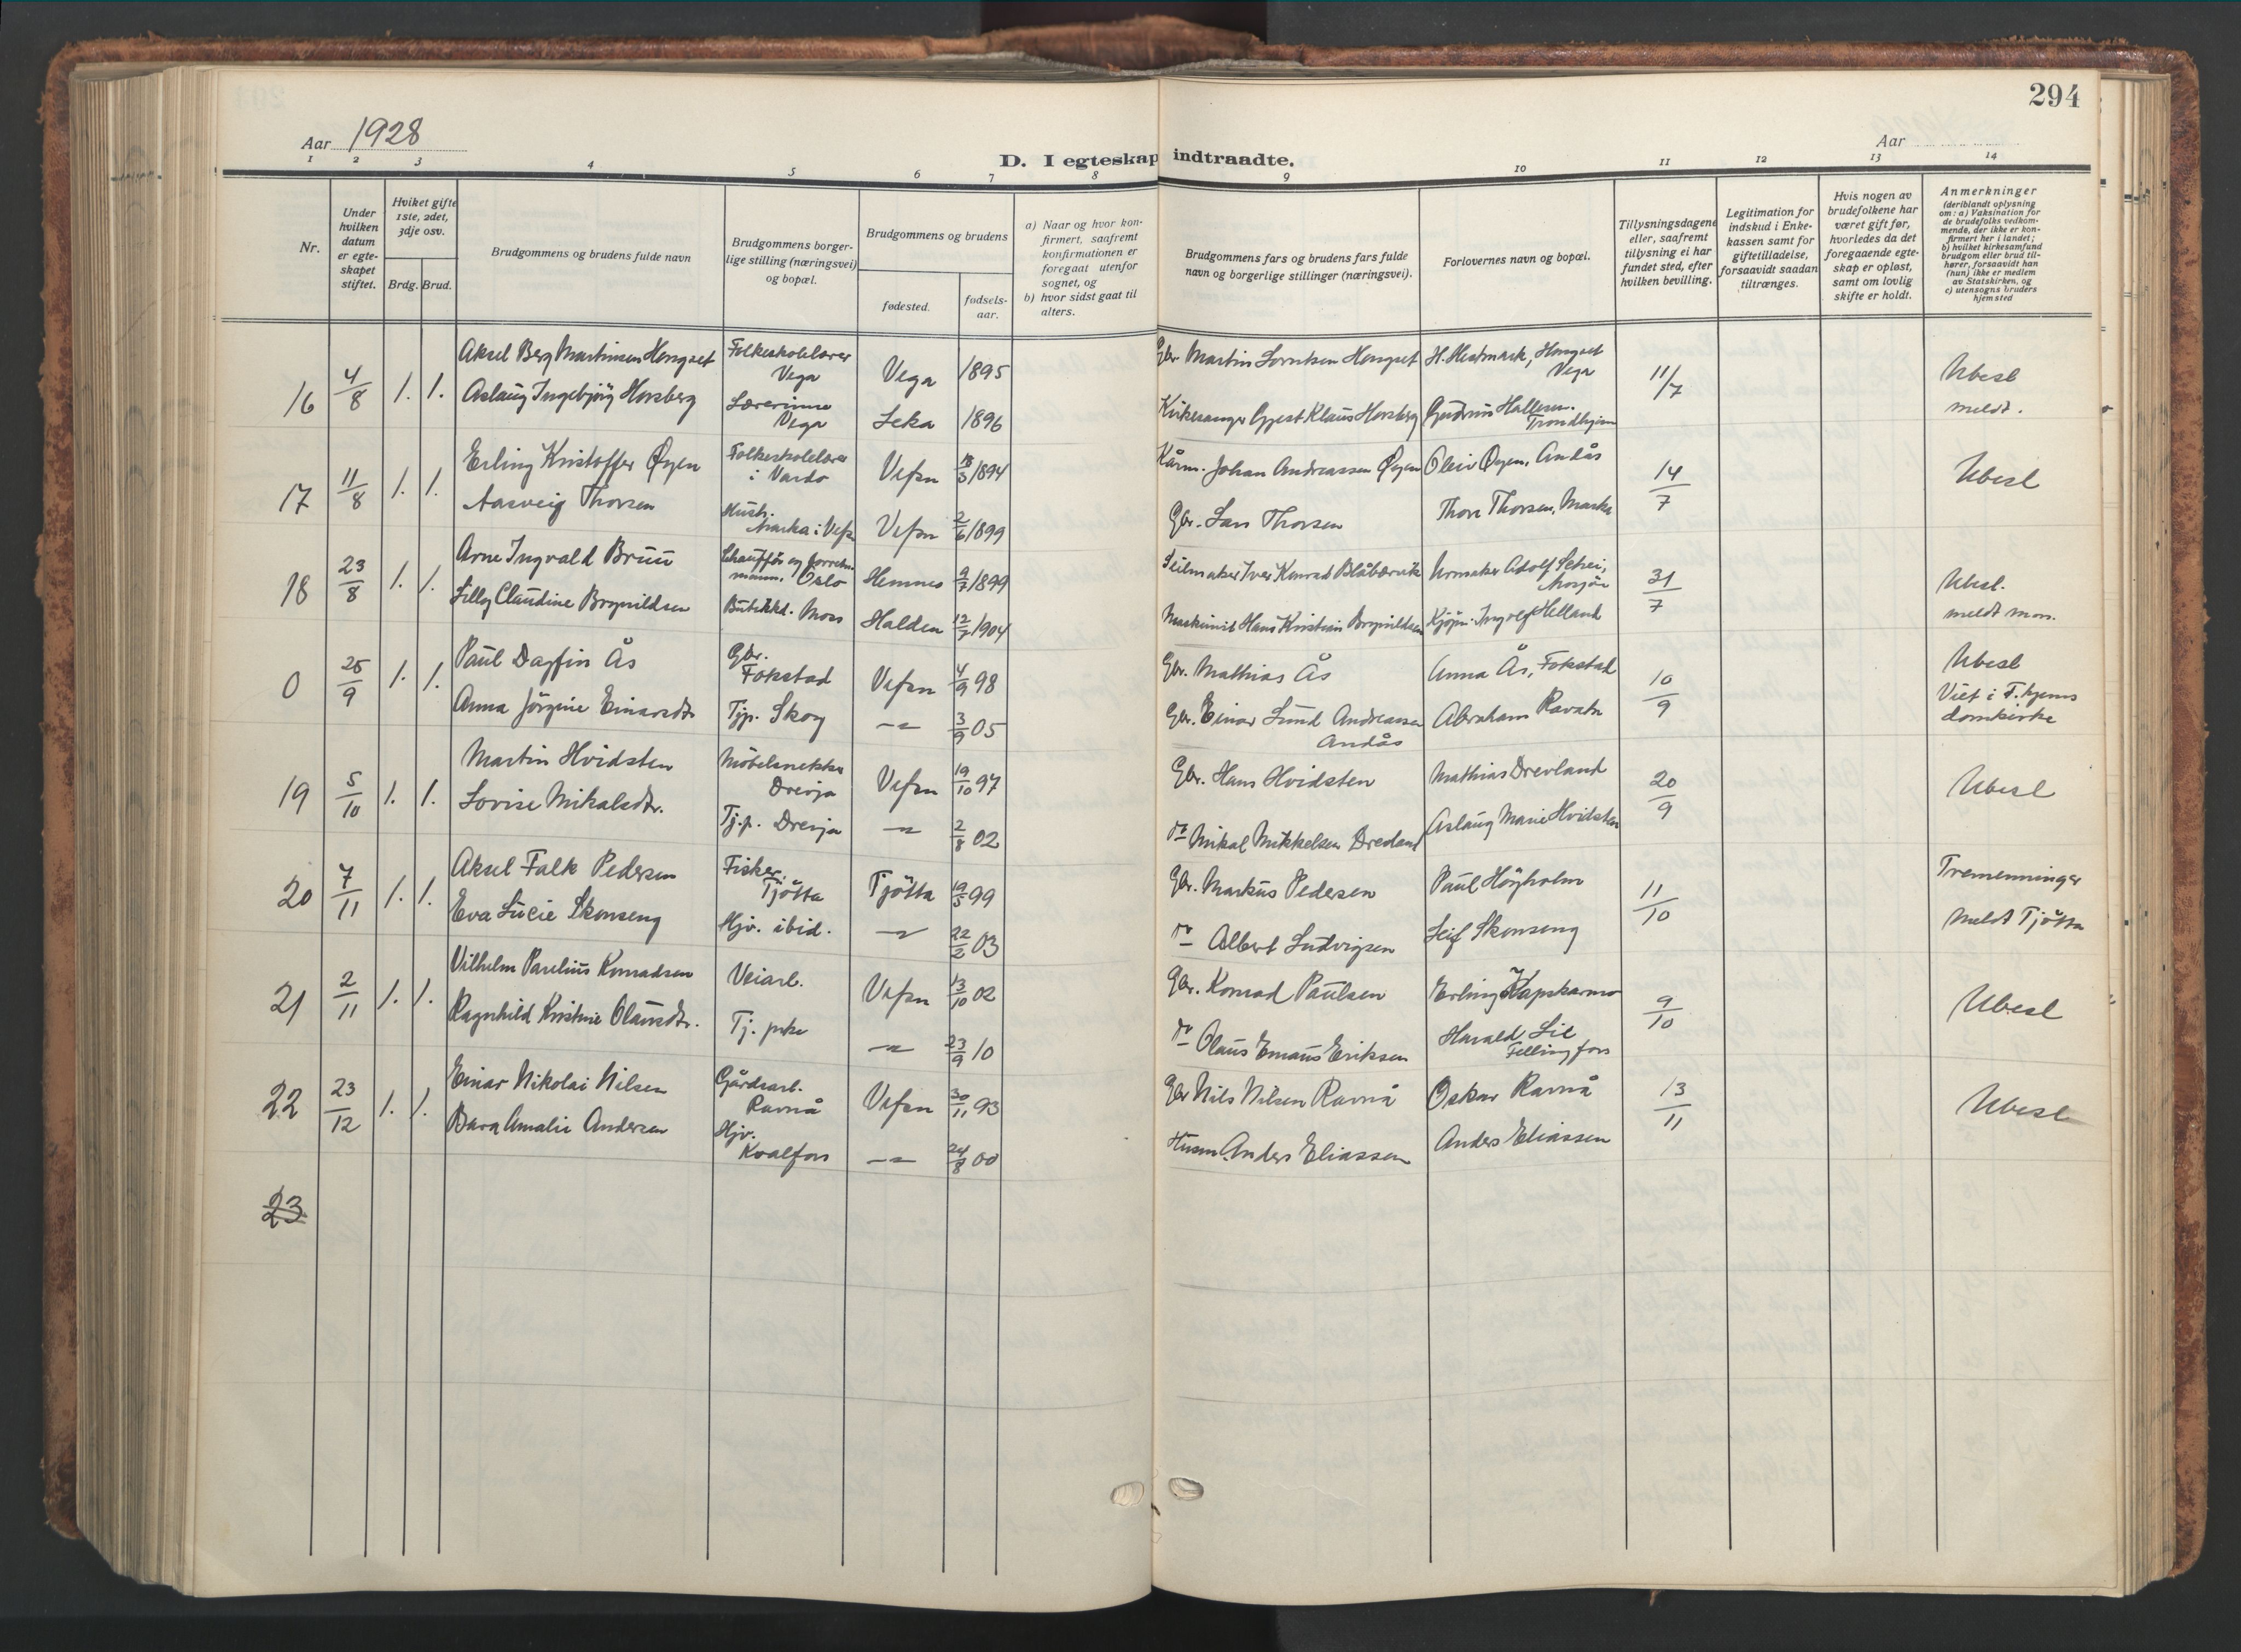 294
Aar 1928
Aar
D. I egteskap indtraadte.
1 2 3 4 5 6 7 8 9 10 11 12 13 14
Nr.
Under hvilken datum er egteskapet stiftet.
Hviket gifte 1ste, 2det, 3dje osv.
Brdg. Brud.
Brudgommens og brudens fulde navn
Brudgommens borgerlige stilling (næringsvei) og bopæl.
Brudgommens og brudens
fødested.
fødselsaar.
a) Naar og hvor konfirmert, saafremt konfirmationen er foregaat utenfor sognet, og
b) hvor sidst gaat til alters.
Brudgommens fars og brudens fars fulde navn og borgerlige stillinger (næringsvei).
Forlovernes navn og bopæl.
Tillysningsdagene eller, saafremt tillysning ei har fundet sted, efter hvilken bevilling.
Legitimation for indskud i Enkekassen samt for giftetilladelse, forsaavidt saadan tiltrænges.
Hvis nogen av brudefolkene har været gift før, hvorledes da det foregaaende egteskap er opløst, samt om lovlig skifte er holdt.
Anmerkninger (deriblandt oplysning om: a) Vaksination for de brudefolks vedkommende, der ikke er konfirmert her i landet; b) hvilket kirkesamfund brudgom eller brud tilhører, forsaavidt han (hun) ikke er medlem av Statskirken, og c) utensogns bruders hjemsted
16 4/8 1. 1. Aksel Berg Martinsen Hongset Folkeskolelærer Vega Vega 1895 Gbr. Martin Lorntsen Hongset H. Hestmark, Hongset Vega 11/7 Ubesl
Aslaug Ingebjørg Horsberg Lærerinne Vega Leka 1896 Kirkesanger Gjest Klaus Horsberg Gudrun Hallesen. Trondhjem meldt.
17 11/8 1. 1. Erling Kristoffer Øyen Folkeskolelærer i Vardø Vefsn 18/3 1894 Kårm. Johan Andreassen Øyen Oleiv Øyen, Andås 14/7 Ubesl
Aasveig Thorsen Hustr. Marka i Vefsn Vefsn 2/6 1899 Gbr. Lars Thorsen Thore Thorsen, Marka
18 23/8 1. 1. Arne Ingvald Bruu Chauffør og forretn.mann. Oslo Hemnes 9/7 1899 Seilmaker Iver Konrad Blåbærvik Urmaker Adolf Schei, Mosjøen 31/7 Ubesl.
Lilly Claudine Brynildsen Butikkd. Moss Halden 12/7 1904 Maskinist Hans Kristian Brynildsen Kjøpm. Ingolf Helland meldt mosj.
0 25/9 1. 1. Paul Dagfin Ås Gbr. Fokstad Vefsn 4/9 98 Gbr. Mathias Ås Anna Ås, Fokstad 10/9 Ubesl
Anna Jörgine Einarsdtr Tjp. Skog –"– 3/9 05 Gbr. Einar Lund Andreassen Andås Abraham Ravatn Viet i T.hjems domkirke
19 5/10 1. 1. Martin Hvidsten Möbelsnekker Drevja Vefsn 19/10 97 Gbr. Hans Hvidsten Mathias Drevland 20/9 Ubesl
Lovise Mikalsdtr. Tj.p. Drevja –"– 2/8 02 do Mikal Mikkelsen Drevland Aslaug Marie Hvidsten
20 7/11 1. 1. Aksel Falk Pedersen Fisker, Tjötta Tjötta 19/5 99 Gbr. Markus Pedersen Paul Höyholm 11/10 Tremenninger
Eva Lucie Skonseng Hjv. ibid. –"– 22/2 03 do Albert Ludvigsen Leif Skonseng Meldt Tjötta
21 2/11 1. 1. Vilhelm Parelius Konradsen Veiarb. Vefsn 13/10 02 Gbr. Konrad Paulsen Erling Kapskarmo 9/10 Ubesl
Ragnhild Kristine Olausdtr. Tj. pike –"– 23/9 10 do Olaus Emaus Eriksen Harald Lie Fellingfors
22 23/12 1. 1. Einar Nikolai Nilsen Gårdsarb. Ravnå Vefsn 30/11 93 Gbr Nils Nilsen Ravnå Oskar Ravnå 13/11 Ubesl
Bara Amalie Andersen Hjv. Kvalfors –"– 24/8 00 Husm Anders Eliassen Anders Eliassen
23